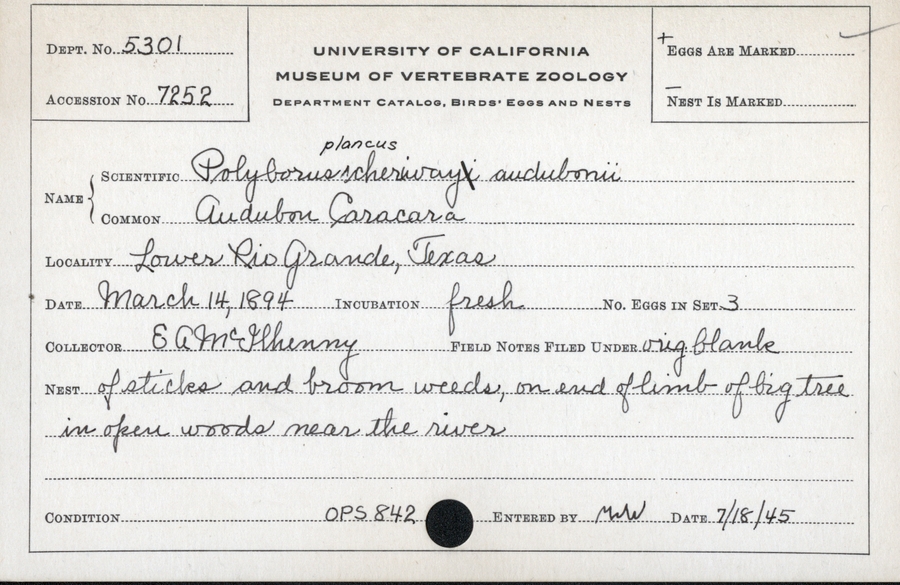 DEPT. NO. 5301
ACCESSION NO. 7252
UNIVERSITY OF CALIFORNIA
MUSEUM OF VERTEBRATE ZOOLOGY
DEPARTMENT CATALOG, BIRDS' EGGS AND NESTS
+ EGGS ARE MARKED
— NEST IS MARKED
plancus
NAME SCIENTIFIC Polyborus audubonii
COMMON Audubon Caracara
LOCALITY Lower Rio Grande, Texas
DATE March 14, 1894 INCUBATION fresh NO. EGGS IN SET 3
COLLECTOR E A McIlhenny FIELD NOTES FILED UNDER orig blank
NEST of sticks and broom weeds, on end of limb of big tree
in open woods near the river
CONDITION OPS 842 ENTERED BY DATE 7/18/45